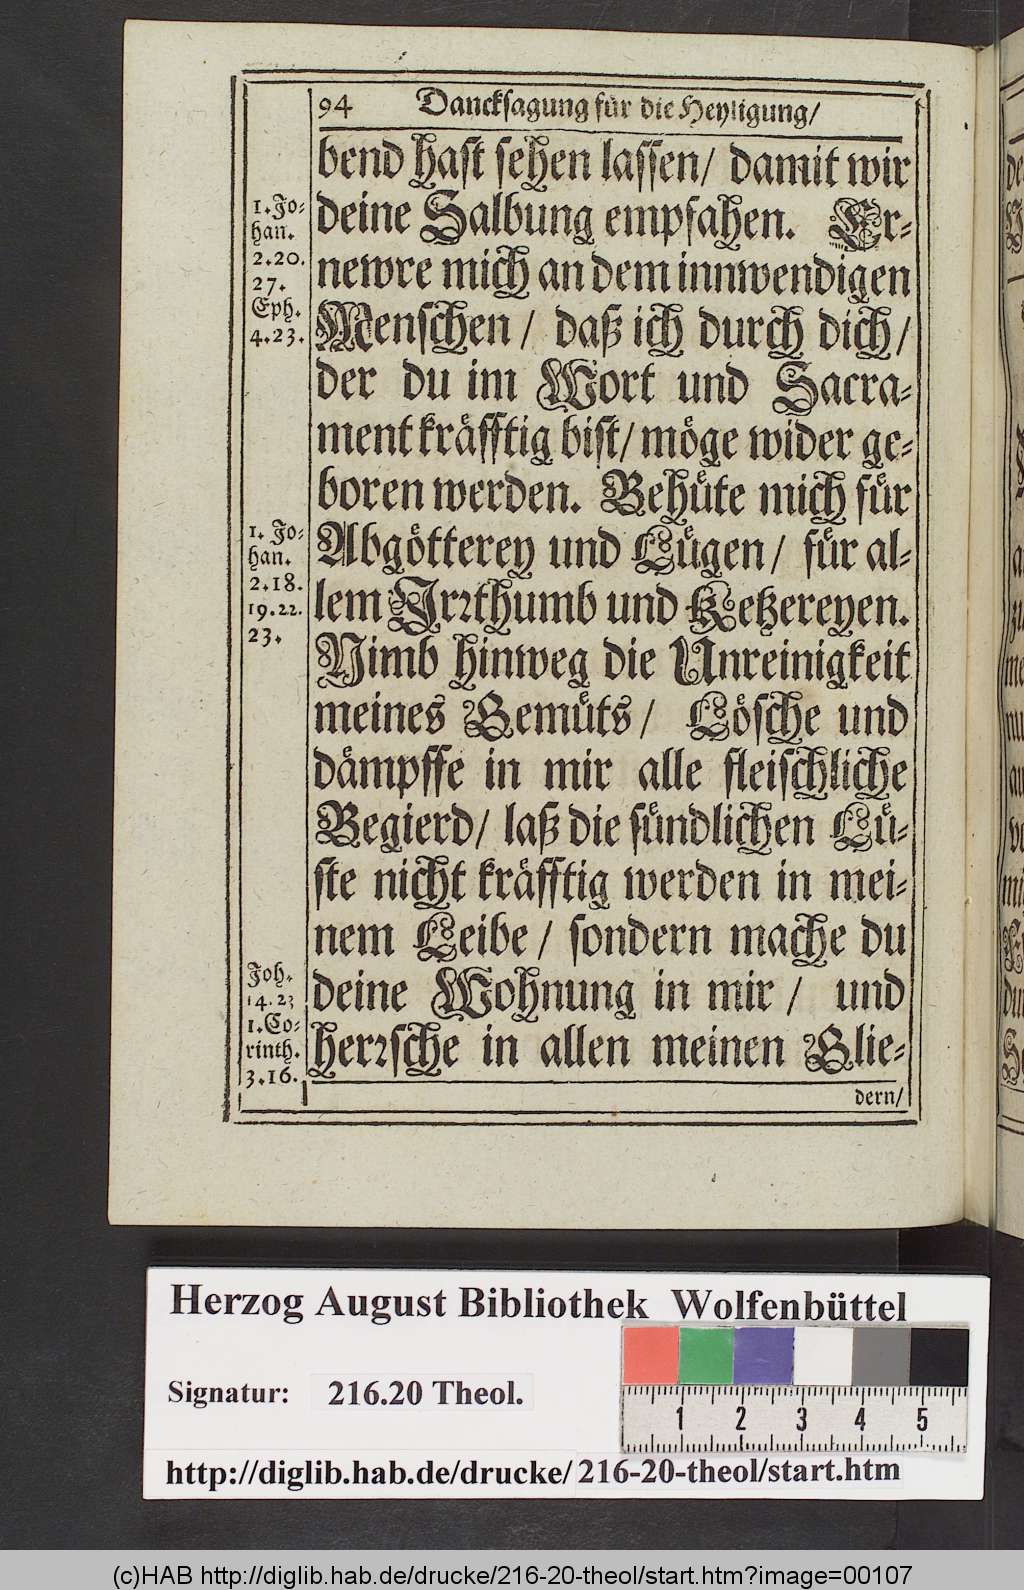 94 Dancksagung für die Heyligung/
bend hast sehen lassen/ damit wir
deine Salbung empfahen. Er-
newre mich an dem innwendigen
Menschen/ daß ich durch dich/
der du im Wort und Sacra-
ment kräfftig bist/ möge wider ge-
boren werden. Behüte mich für
Abgötterey und Lügen/ für al-
lem Irrthumb und Ketzereyen.
Nimb hinweg die Unreinigkeit
meines Gemüts/ Lösche und
dämpffe in mir alle fleischliche
Begierd/ laß die sündlichen Lü-
ste nicht kräfftig werden in mei-
nem Leibe/ sondern mache du
deine Wohnung in mir/ und
herrsche in allen meinen Glie-
dern/
1. Jo-
han.
2.20.
27.
Eph.
4.23.
1. Jo-
han.
2.18.
19.22.
23.
Joh.
14.23
1. Co-
rinth.
3.16.
Herzog August Bibliothek Wolfenbüttel
Signatur: 216.20 Theol.
1 2 3 4 5
http://diglib.hab.de/drucke/216-20-theol/start.htm
(c)HAB http://diglib.hab.de/drucke/216-20-theol/start.htm?image=00107